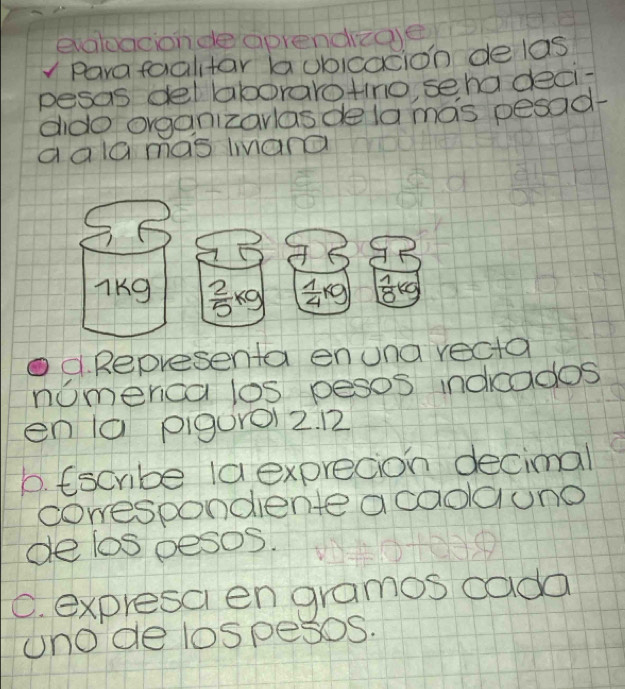 evaluacion de aprendizaje
✓ Para facilitar la ubicación de las
pesas del laborarotrio, se ha deci-
dido organizarlas de la más pesad-
a a la más liviana
1Kg 2/5 Kg 1/4 Kg 1/8 Kg
a. Representa en una recta
númerica los pesos indicados
en la pigura 2.12
b. Escribe la expreción decimal
correspondiente a cada uno
de los pesos.
c. expresa en gramos cada
uno de los pesos.